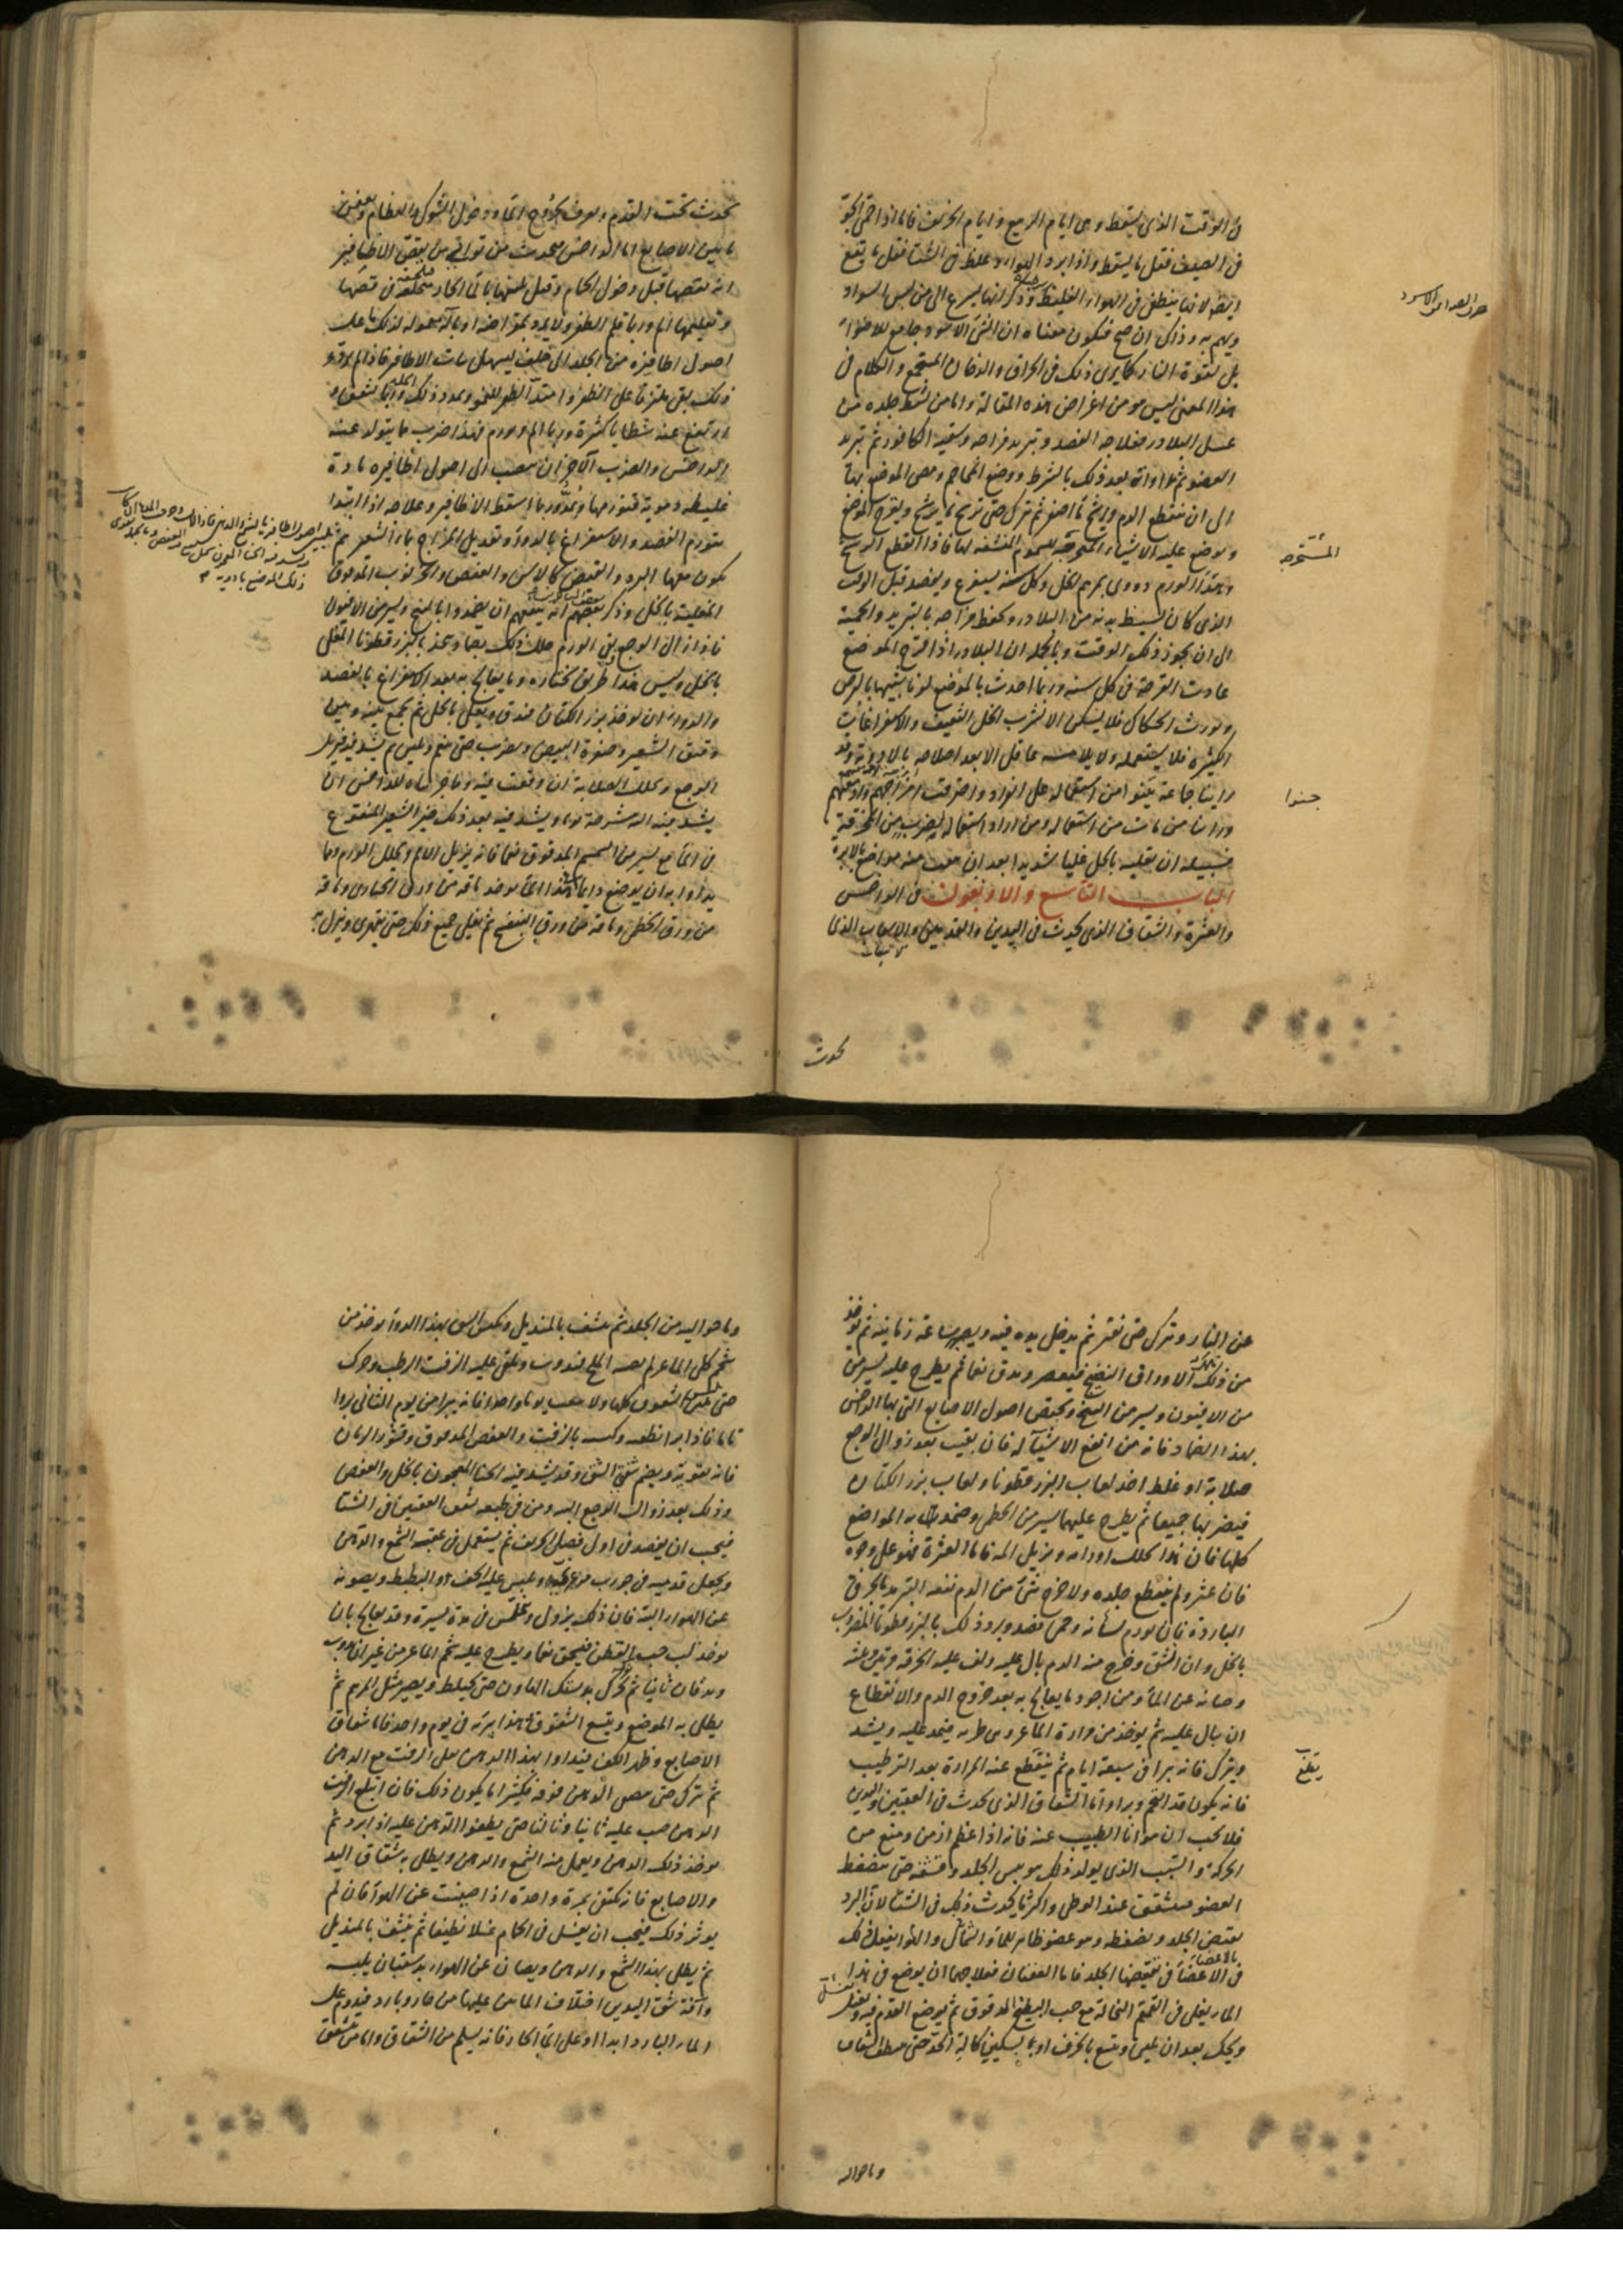 فى الوقت الذى يسقط وهى ايام الربيع وايام الخريف فاما اذا حمى الجو
فى الصيف فقل ما يسقط واذا برد الهواء وغلظ فى الشتا فقل ما يقع
ايضا لانها ينطفى فى الهواء الغليظ وذكر انها يسرع الى من لبس السواد
ويهم به وذاك ان صح فيكون معناه ان الشئ الاسود جامع للاضواء
بل لقوة النار كما يرى ذلك فى الحراق والدخان المستجمع والكلام فى
هذا المعنى ليس هو من اغراض هذه المقالة واما من شط جلده من
عسل البلادر فعلاجه الفصد وتبريد مزاجه وسقيه الكافور ثم تبريد
العضو ثم مداواته بعد ذلك بالشرط ووضع المحاجم ومص الموضع بها
الى ان ينقطع الدم ويرشح ماء اصفر ثم تترك حتى ترشح ما يرشح ويقرح الموضع
ويوضع عليه الاشياء المستخرجة للسموم المنشفه لها فاذا انقطع الرشح
وهدأ الورم دووى بمرهم الخل وكل سنة يستفرغ ويفصد قبل الوقت
الذى كان تسيط بدنه من البلادر ويحفظ مزاجه بالتبريد والحمية
الى ان يجوز ذلك الوقت وبالجملة ان البلادر اذا اقرح الموضع
عادت القرحة فى كل سنة وربما احدث بالموضع لونا شبيها بالبرص
ويورث الحكاك فلا يسكن الا بشرب الخل الثقيف والاستفراغات
الكثيرة فلا يستعمله ولا يلامسه عاقل الا بعد اصلاحه بالادوية وقد
راينا جماعة جنوا من استعماله على انفراد واحترقت امزاجهم وادمغتهم
وراينا من مات من استعماله ومن اراد استعماله لضرب من الخرقية
فسبيله ان يقليه بالخل غليا شديدا بعد ان يثقب منه مواضع بالابرة
الباب التاسع والاربعون فى الداحس
والعثرة والشقاق الذى يحدث فى اليدين والقدمين والاسباب الذى
المستخرجه
جنوا
يحدث
يحدث تحت القدم ويعرف بخروج الماء ودخول الشوك والعظام وتعفن
ما بين الاصابع اما الداحس فيحدث من توانى من يقص الاظافير
انه يقصها قبل دخول الحمام وقبل تليينها بالماء الحار فيلحقه فى قصها
وتقليمها الم وربما قلم الظفر ولا يرد بمقراضه او بآلة معمولة لذلك ما على
اصول اظافيره من الجلد الى خلف ليسهل نبات الاظافر فاذا لم يرد
ذلك بقى ملتزقا على الظفر وامتد الظفر للنمو ويمدد ذلك الجلد وربما تشقق
وارتفع عنه شظايا كثيرة وربما الم وورم فهذا ضرب ما يتولد عنه
الداحس والضرب الآخر ان ينصب الى اصول اظافيره مادة
غليظة دموية فتورمها وتمدد وربما اسقط الاظافير وعلاجه اذا ابتدا
بتورم الفصد والاستفراغ بالدواء وتعديل المزاج بماء الشعير ثم
يكون معها البرد والقبض كالآس والعفص والخرنوب المدقوق
المغلية بالخل وذكر بعضهم انه ينفعهم ان يضمدوا بالبنج ويسير من الافيون
فاذا زال الوجع بقى الورم حلل ذلك بضماد يتخذ بالبزر قطونا المغلى
بالخل وليس هذا طريق نختاره وما يعالج به بعد الاستفراغ بالفصد
والدواء ان يوخذ بزر الكتان فيدق ويغلى بالخل ثم يجمع بينه وبين
دقيق الشعير وصفرة البيض ويضرب حتى ينعم ويلين ثم يشد فيه فيزيل
الوجع ويحلل الصلابة ان وقعت فيه
يشد فيه اليه شرحة يوما ويشد فيه بعد ذلك خبز الشعير المنقوع
فى الماء مع يسير من السمسم المدقوق نعما فانه يزيل الالم ويحلل الورم ومما
يداوا به ان يوضع دايما فى هذا الماء يوخذ باقه من ورق الخبازى وباقه
من ورق الخطمى وباقه من ورق البنفسج ثم يغلى جميع ذلك حتى يتهرى وينزل به
عن النار ويترك حتى تفتر ثم يدخل يده فيه ويصبر ساعة زمانية ثم يوخذ
من ذلك الاوراق النضيج فيعصر ويدق نعما ثم يطرح عليه يسير من
من الافيون ويسير من البنج وتحتقن اصول الاصابع التى بها الداحس
بهذا الضماد فانه من انفع الاشيآ له فان بقيت بعد زوال الوجع
صلابة او غلظ اخذ لعاب البزر قطونا ولعاب بزر الكتان
فيضربها جميعا ثم يطرح عليهما يسير من الخطمى وضمدت به المواضع
كلها فان هذا يحلل اورامه ويزيل المه فاما العثرة فهو على وجوه
فان عثر ولم ينقطع جلده ولا خرج شئ من الدم نفعه التبريد بالخرق
الباردة فان تورم لسانه وحمى فصد وبرد ذلك بالبزر قطونا المضروب
بالخل وان انشق وخرج منه الدم بال عليه ولف عليه الخرقة مرتين وثلثه
وصانه عن الماء ومن اجود ما يعالج به بعد خروج الدم والانقطاع
ان بال عليه ثم يوخذ من مرارة الماعز وهى طرية فيمد عليه ويشد
ويترك فانه يبرا فى سبعة ايام ثم ينقطع عنه المرارة بعد الترطيب
فانه يكون قد التحم وبرا واما الشقاق الذى يحدث فى العقبين واليدين
فلا يجب ان يتوانا الطبيب عنه فانه اذا عظم ازمن ومنع من
الحركة والسبب الذى يولد ذلك هو يبس الجلد وقشفه حتى ينضغط
العضو فيتشقق عند الوطى واكثر ما يحدث ذلك فى الشتا لان البرد
يقبض الجلد ويضغطه وهو عضو ظاهر للماء والشمال والهوا يفعل ذلك
فى الاعضاء فى تقبيضها الجلد فاما العقبان فعلاجهما ان يوضع فى هذا
الماء يغلى فى القمقم النخالة مع حب البطيخ المدقوق ثم يوضع القدم فيه ويغسل
ويحك بعد ان يلين ويتبع بالخزف او بالسكين كالة الحد حتى ينظف الشقاق
يقلع
وما حواليه
وما حواليه من الجلد ثم ينشف بالمنديل ويكبس الشق بهذا الدوآ يوخذ من
شحم كلى الماعز لم يصبه الملح فيذوب ويلقى عليه الزفت الرطب وحرك
حتى الشقوق كلها ولا يصب يوما واحدا فانه يبرا من يوم الثانى بروا
تاما فاذا برا نظفه وكبسه بالزفت والعفص المدقوق وقشور الرمان
فانه يقويه ويضم شفتى الشق وقد يشد فيه الحنا المعجون بالخل والعفص
وذلك بعد زوال الوجع اليه ومن فى طبعه تشقق العقبين فى الشتا
فيجب ان يفصد فى اول فصل الخريف ثم يستعمل فى عقبه الشمع والدهن
ويجعل قدميه فى جورب مرعزى ويلبس عليه الخف او البطيط ويصونه
عن الهواء البتة فان ذلك يزول ويملس فى مدة يسيرة وقد يعالج بان
يوخذ لب حب القطن فيسحق نعما ويطرح عليه شحم الماعز من غير ان يذوب
ويدقان ثانيا ثم يحرك بدستك الهاون حتى يختلط ويصير مثل المرهم ثم
يطلى به الموضع ويتبع الشقوق فهذا يبره فى يوم واحد فاما شقاق
الاصابع وظهر الكف فيداوا بهذا الدهن يغلى الزفت مع الدهن
ثم يترك حتى يمص الدهن فوقه فكثيرا ما يكون ذلك فان ابتلع الزفت
الدهن صب عليه ثانيا وثالثا حتى يطفوا الدهن عليه اذا برد ثم
يوخذ ذلك الدهن ويعمل منه الشمع والدهن ويطلى به شقاق اليد
والاصابع فانه يكتفى بمرة واحدة اذا صينت عن الهوآ فان لم
يوثر ذلك فيجب ان يغسل فى الحمام غسلا نظيفا ثم ينشف بالمنديل
ثم يطلى بهذا الشمع والدهن ويصان عن الهواء بدستبان يلبسه
وآفة شق اليدين اختلاف المائين عليها من حار وبارد فيدوم على
الماء البارد ابدا او على الماء الحار فانه يسلم من الشقاق واما من تشقق